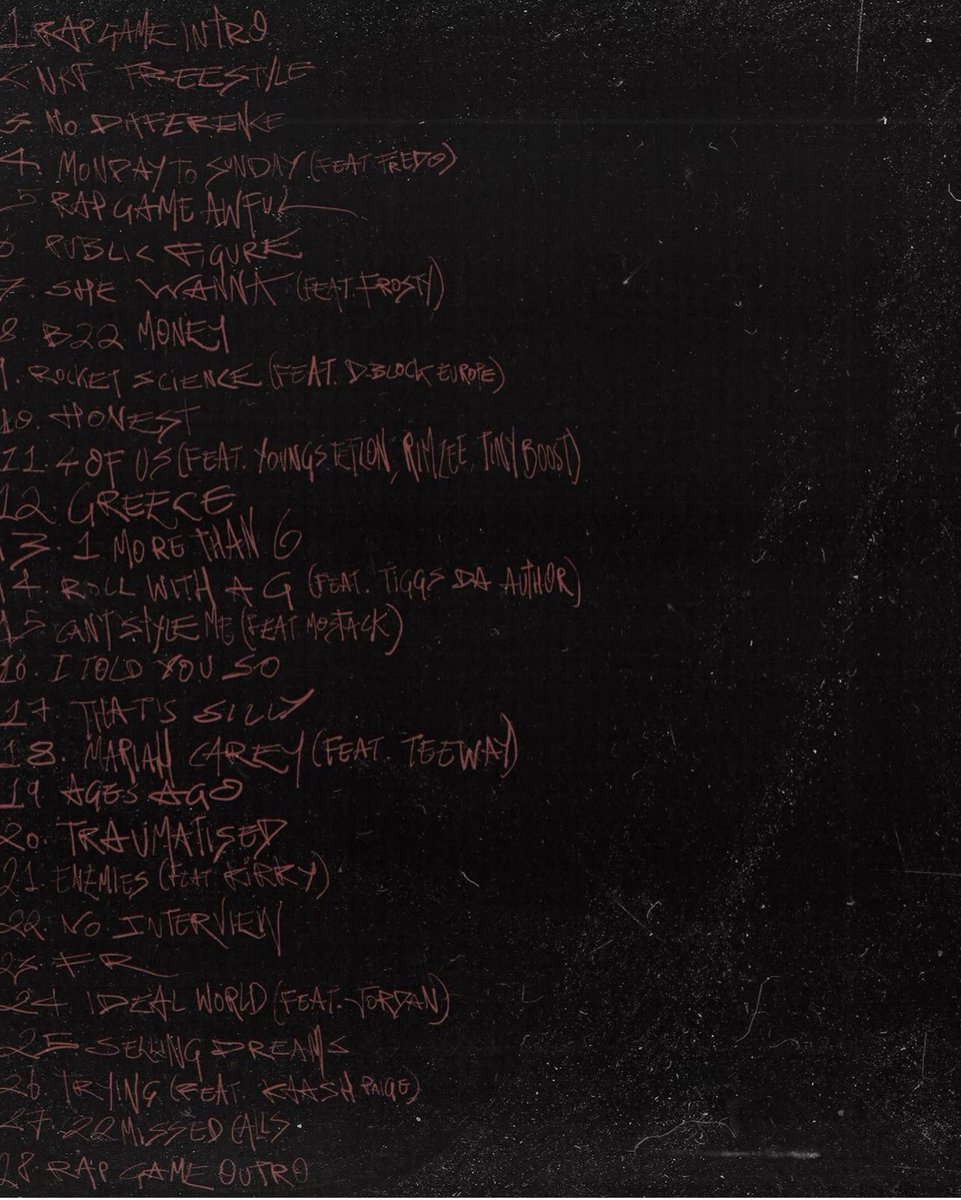 1 RAP GAME INTRO
2. NRF FREESTYLE
3. NO DIFFERENCE
4. MONDAY TO SUNDAY (FEAT. FREDO)
5 RAP GAME AWFUL
6 PUBLIC FIGURE
7. SHE WANNA (FEAT. FROSTY)
8 B22 MONEY
9. ROCKET SCIENCE (FEAT. D-BLOCK EUROPE)
10. HONEST
11. 4 OF US (FEAT. YOUNGS TEFLON, RIMZEE, TINY BOOST)
12. GREECE
13. 1 MORE THAN 6
14. ROLL WITH A G (FEAT. TIGGS DA AUTHOR)
15 CAN'T STYLE ME (FEAT MOSTACK)
16. I TOLD YOU SO
17. THAT'S SILLY
18. MARIAH CAREY (FEAT. TEEWAY)
19 AGES AGO
20. TRAUMATISED
21. ENEMIES (FEAT KIRKY)
22 NO INTERVIEW
23 FR
24 IDEAL WORLD (FEAT. JORDAN)
25. SELLING DREAMS
26. TRYING (FEAT KAASH PAIGE)
27. 22 MISSED CALLS
28 RAP GAME OUTRO